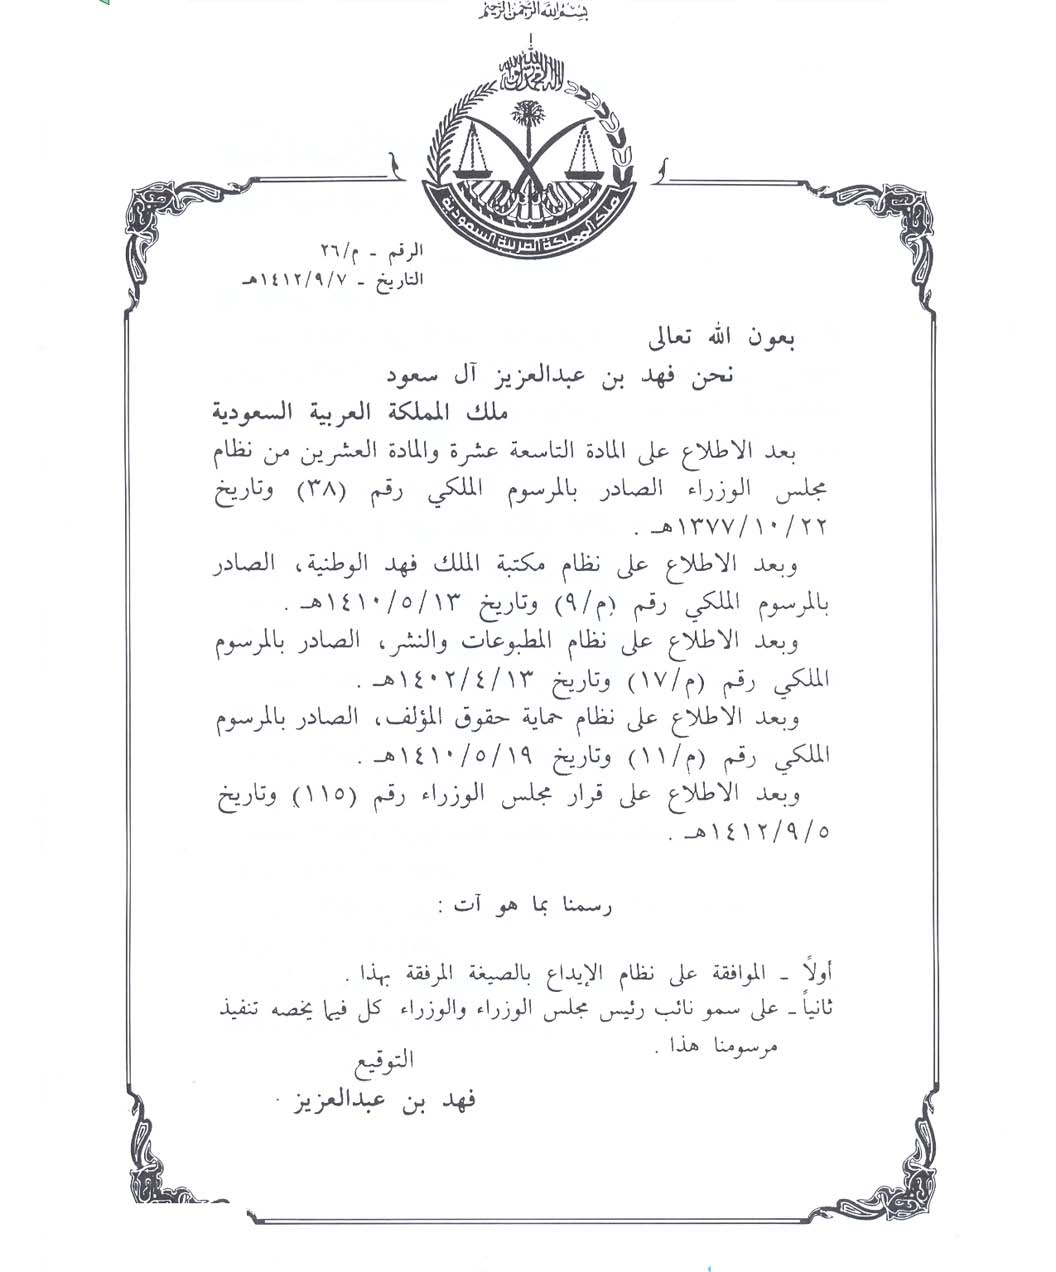 بسم الله الرحمن الرحيم
لا إله إلا الله محمد رسول الله
ملك المملكة العربية السعودية
الرقم ـ م/٢٦
التاريخ ـ ١٤١٢/٩/٧هـ
بعون الله تعالى
نحن فهد بن عبدالعزيز آل سعود
ملك المملكة العربية السعودية
بعد الاطلاع على المادة التاسعة عشرة والمادة العشرين من نظام
مجلس الوزراء الصادر بالمرسوم الملكي رقم (٣٨) وتاريخ
١٣٧٧/١٠/٢٢هـ .
وبعد الاطلاع على نظام مكتبة الملك فهد الوطنية، الصادر
بالمرسوم الملكي رقم (م/٩) وتاريخ ١٤١٠/٥/١٣هـ .
وبعد الاطلاع على نظام المطبوعات والنشر، الصادر بالمرسوم
الملكي رقم (م/١٧) وتاريخ ١٤٠٢/٤/١٣هـ .
وبعد الاطلاع على نظام حماية حقوق المؤلف، الصادر بالمرسوم
الملكي رقم (م/١١) وتاريخ ١٤١٠/٥/١٩هـ .
وبعد الاطلاع على قرار مجلس الوزراء رقم (١١٥) وتاريخ
١٤١٢/٩/٥هـ .
رسمنا بما هو آت :
أولاً ـ الموافقة على نظام الإيداع بالصيغة المرفقة بهذا .
ثانياً ـ على سمو نائب رئيس مجلس الوزراء والوزراء كل فيما يخصه تنفيذ
مرسومنا هذا .
التوقيع
فهد بن عبدالعزيز .